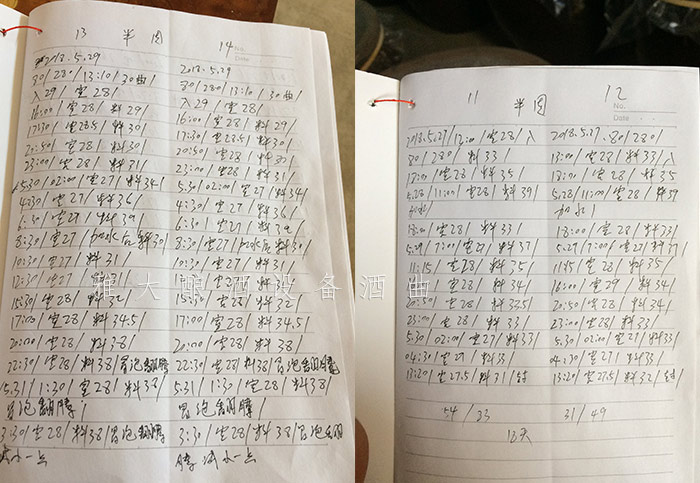 13 半固 14
No.
Date
2018.5.29
30/280/13:10/30曲/
入29/室28/
16:00/室28/料29/
17:30/室28.5/料30/
20:50/室28/料30/
23:00/室28/料31/
5.30/02:00/室27/料34/
4:30/室27/料36/
6:30/室27/料39/
8:30/室27/加水后料30/
10:30/室27/料31/
12:30/室27/料31/
15:30/室28/料32/
17:00/室28/料34.5/
20:00/室28/料38/
22:30/室28/料38/冒泡翻腾
5.31/1:30/室28/料38/
冒泡翻腾/
3:30/室28/料38/冒泡翻腾
减小一点
2018.5.29
30/280/13:10/30曲/
入29/室28/
16:00/室28/料29/
17:30/室28.5/料30/
20:50/室28/料30/
23:00/室28/料31/
5.30/02:00/室27/料34/
4:30/室27/料36/
6:30/室27/料39/
8:30/室27/加水后料30/
10:30/室27/料31/
室27/料31/
15:30/室28/料32/
17:00/室28/料34.5/
20:00/室28/料38/
22:30/室28/料38/冒泡翻腾
5.31/1:30/室28/料38/
冒泡翻腾/
3:30/室28/料38/冒泡翻
腾减小一点
11 半固 12
No.
Date
2018.5.27/12:00/室28/入
30/280/料33/
18:00/室28/料35/
5.28/11:00/室28/料39/
加水/
18:00/室28/料33/
5.29/7:00/室27/料37/
11:15/室28/料35/
室28/料34/
20:50/室28/料33.5/
23:00/室28/料33/
5.30/02:00/室27/料33/
04:30/室27/料33/
13:20/室27.5/料31/封
54/33
2018.5.27.30/280/
13:00/室28/料33/入
18:00/室28/料35/
5.28/11:00/室28/料39
加水/
18:00/室28/料33/
5.29/7:00/室27/料37/
11:15/室28/料35/
16:00/室29/料34/
20:50/室28/料34/
23:00/室28/料33/
5.30/02:00/室27/料33/
04:30/室27/料33/
13:20/室27.5/料32/封/
31/49
12天
雅大酿酒设备酒曲